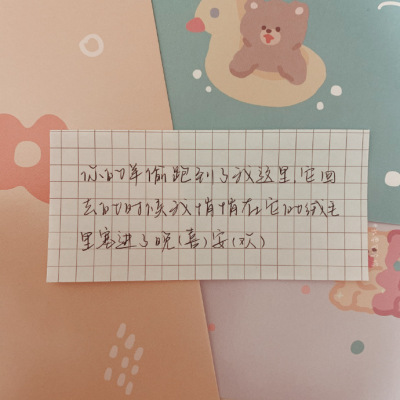 你的羊偷跑到了我这里,它回
去的时候我悄悄在它的绒毛
里塞进了晚(喜)安(欢)